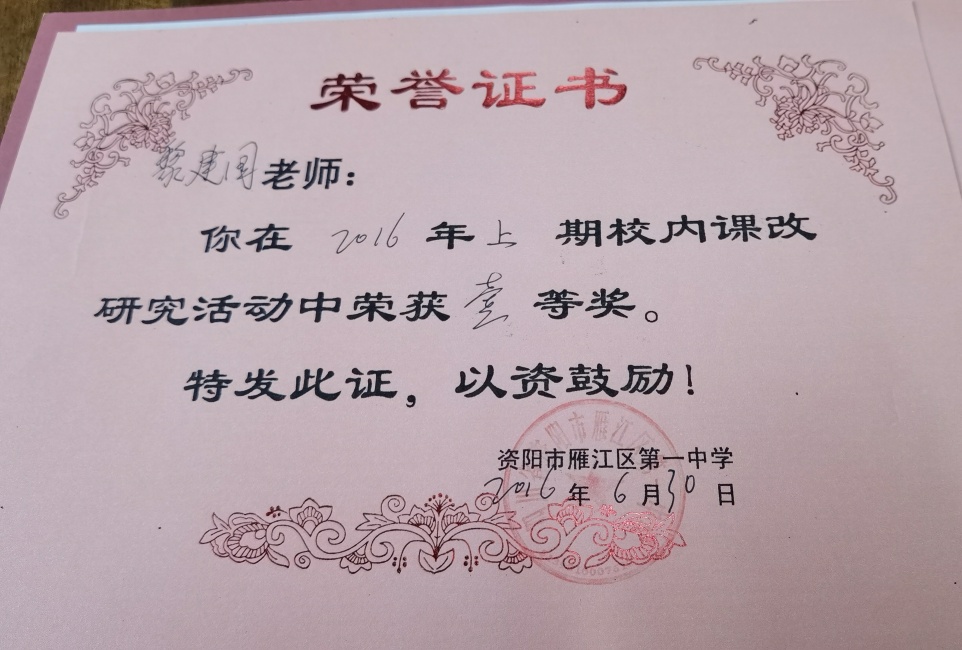 荣誉证书
黎建国老师：
你在 2016 年上 期校内课改
研究活动中荣获 壹 等奖。
特发此证，以资鼓励！
资阳市雁江区第一中学
2016 年 6 月 30 日